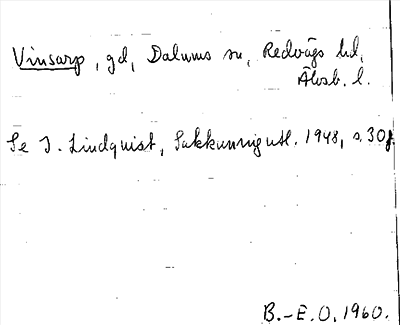 Vinsarp, gd, Dalums sn, Redvägs hd,
Älvsb. l.
Se I. Lindquist, Sakkunnigutl. 1948, s. 30f.
B.-E. O, 1960.